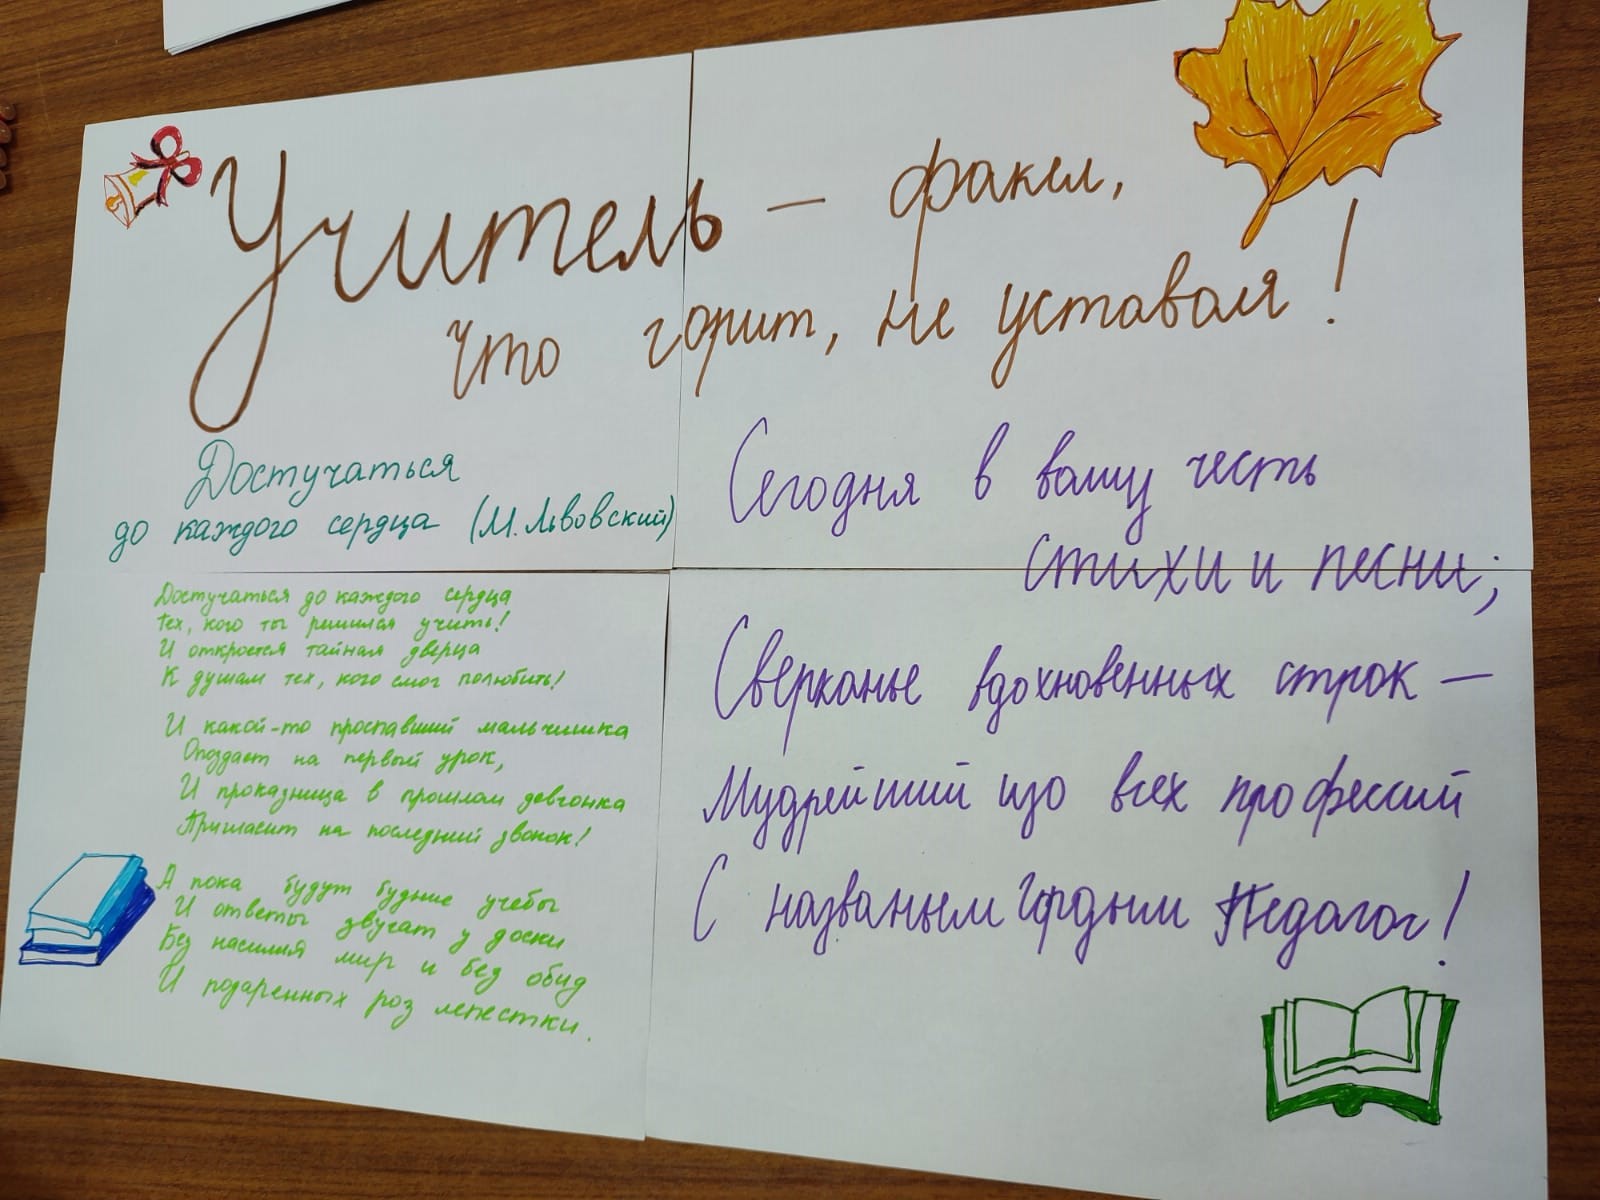 Учитель — факел,
что горит, не уставая!
Достучаться
до каждого сердца (М. Львовский)
Достучаться до каждого сердца
Тех, кого ты решился учить!
И откроется тайная дверца
К душам тех, кого смог полюбить!
И какой-то проспавший мальчишка
Опоздает на первый урок,
И проказница в прошлом девчонка
Пригласит на последний звонок!
А пока будут будние учебы
И ответы звучат у доски
Без насилия мир и без обид
И подаренных роз лепестки.
Сегодня в вашу честь
стихи и песни;
Сверканье вдохновенных строк —
Мудрейший изо всех профессий
С названьем гордым Педагог!